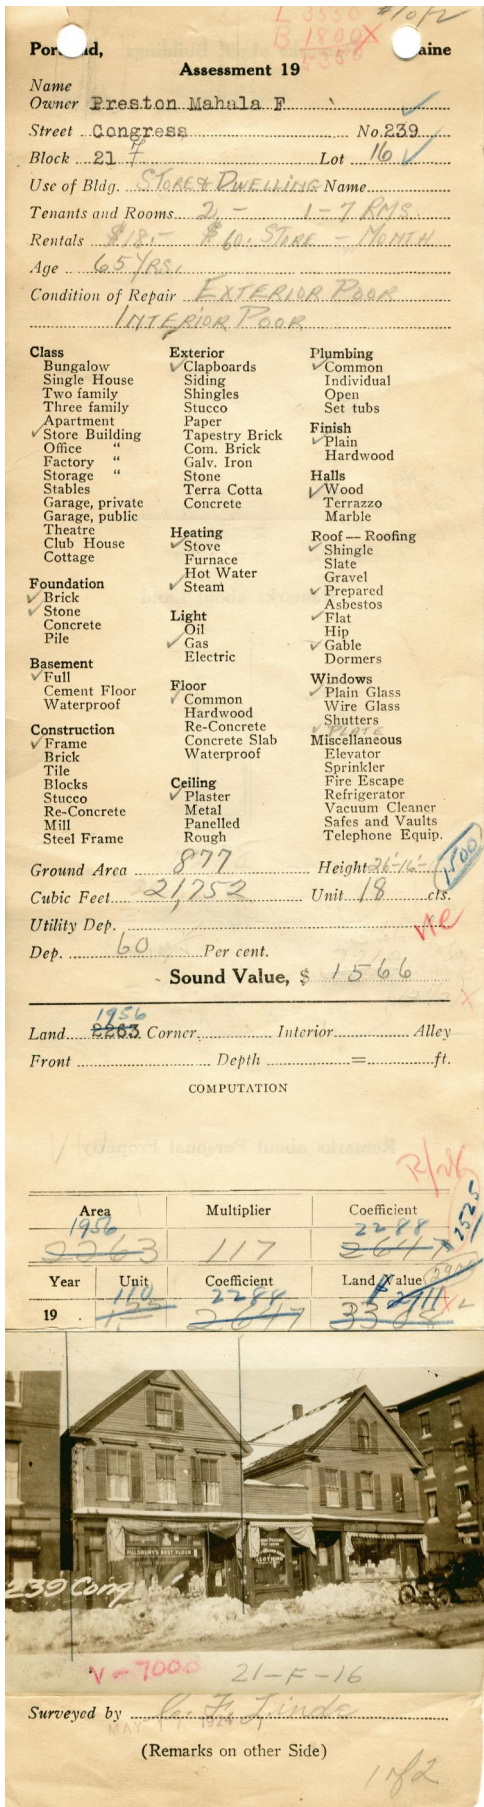 L 3350 #1 of 2
B 1800 X
5350
Portland, Maine
Assessment 19
Name
Owner Preston Mahala F
Street Congress No. 239
Block 21 F Lot 16
Use of Bldg. STORE & DWELLING Name
Tenants and Rooms 2 - 1-7 RMS.
Rentals $18.- $60. STORE - MONTH
Age 65 YRS.
Condition of Repair EXTERIOR POOR
INTERIOR POOR
Class
Bungalow
Single House
Two family
Three family
Apartment
✓ Store Building
Office "
Factory "
Storage "
Stables
Garage, private
Garage, public
Theatre
Club House
Cottage
Foundation
✓ Brick
✓ Stone
Concrete
Pile
Basement
✓ Full
Cement Floor
Waterproof
Construction
✓ Frame
Brick
Tile
Blocks
Stucco
Re-Concrete
Mill
Steel Frame
Exterior
✓ Clapboards
Siding
Shingles
Stucco
Paper
Tapestry Brick
Com. Brick
Galv. Iron
Stone
Terra Cotta
Concrete
Heating
✓ Stove
Furnace
Hot Water
✓ Steam
Light
Oil
✓ Gas
Electric
Floor
✓ Common
Hardwood
Re-Concrete
Concrete Slab
Waterproof
Ceiling
✓ Plaster
Metal
Panelled
Rough
Plumbing
✓ Common
Individual
Open
Set tubs
Finish
✓ Plain
Hardwood
Halls
✓ Wood
Terrazzo
Marble
Roof — Roofing
✓ Shingle
Slate
Gravel
✓ Prepared
Asbestos
✓ Flat
Hip
✓ Gable
Dormers
Windows
✓ Plain Glass
Wire Glass
Shutters
✓ PLATE
Miscellaneous
Elevator
Sprinkler
Fire Escape
Refrigerator
Vacuum Cleaner
Safes and Vaults
Telephone Equip.
Ground Area 877 Height 26'-16'- 1500
Cubic Feet 21,752 Unit 18 cts.
Utility Dep.
Dep. 60 Per cent.
Sound Value, $ 1566
1956
Land 2263 Corner Interior Alley
Front Depth = ft.
COMPUTATION
Area Multiplier Coefficient
1956 2288 2525
2263 117 2647
Year Unit Coefficient Land Value
110 2288 $ 2911
19 2647 3308
PILLSBURY'S BEST FLOUR
CLOTHING
239 Cong
V-7000 21-F-16
Surveyed by C. F. Linde
MAY 1924
(Remarks on other Side)
1 of 2